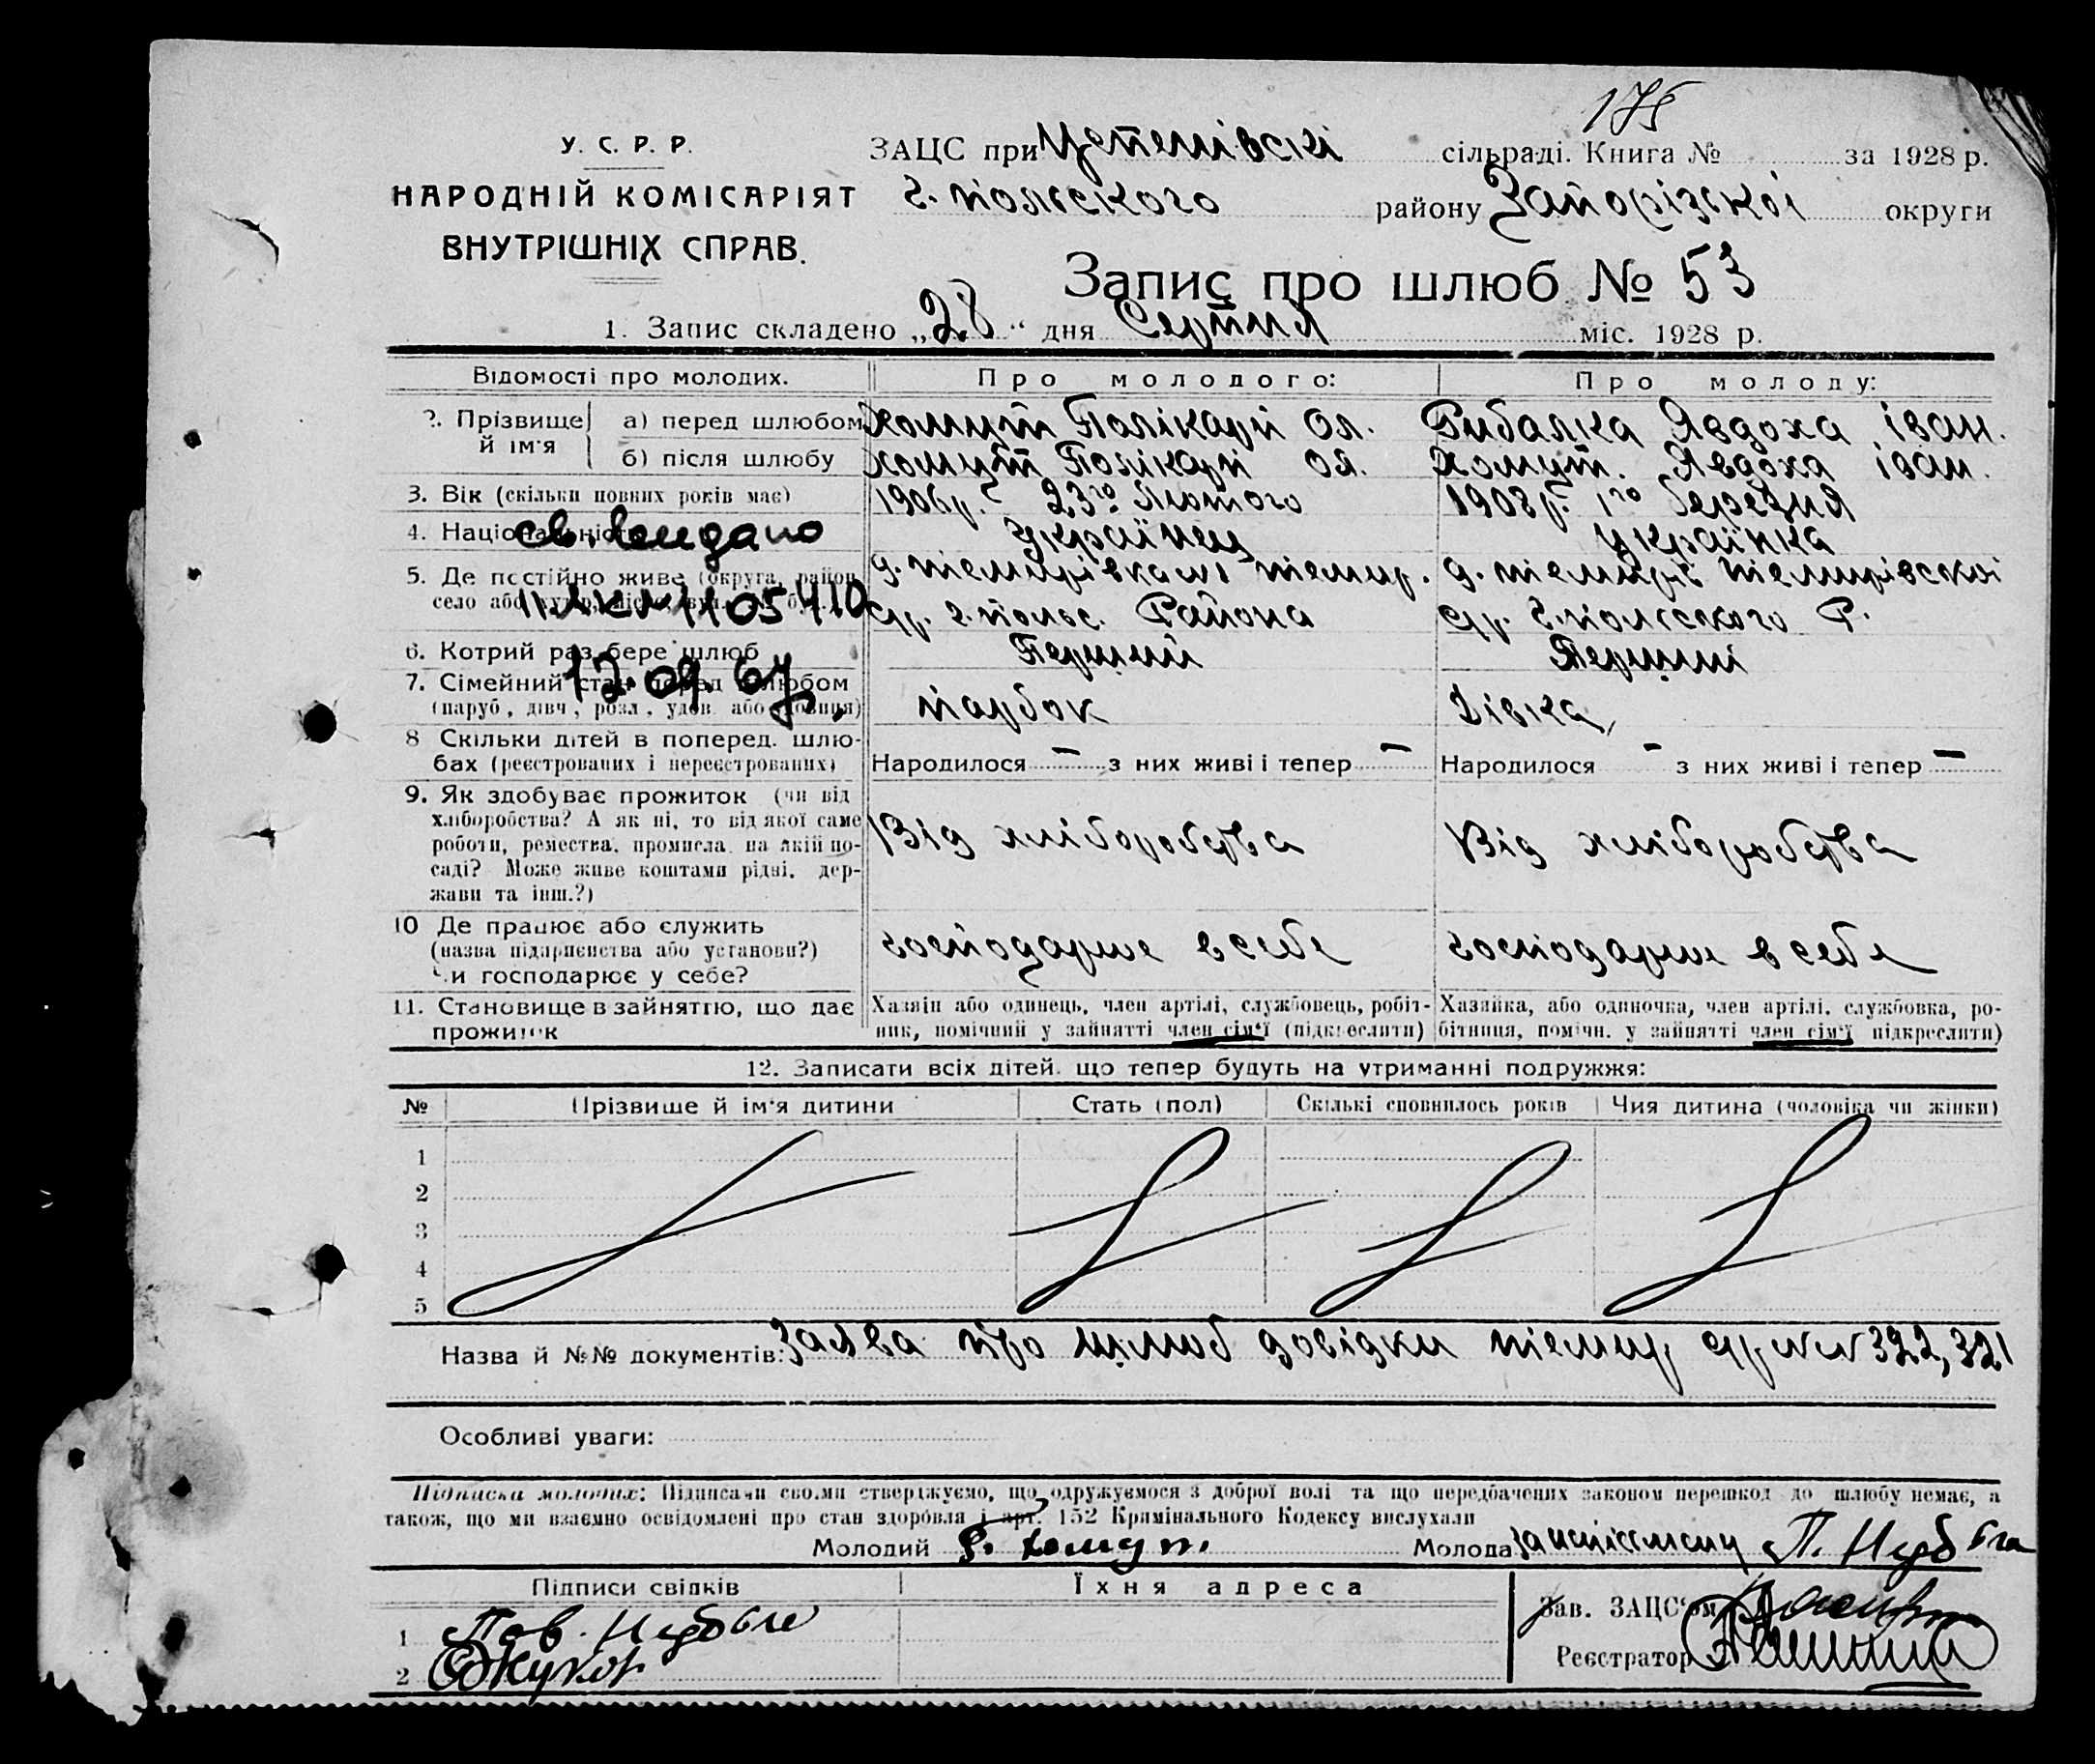 175
У. С. Р. Р.
НАРОДНІЙ КОМІСАРІЯТ
ВНУТРІШНІХ СПРАВ.
ЗАЦС при сільраді. Книга № за 1928 р.
г. польского району Запорізської округи
Запис про шлюб № 53
1. Запис складено „28“ дня Серпня міс. 1928 р.
Відомості про молодих. Про молодого: Про молоду:
2. Прізвище й ім'я а) перед шлюбом Хомут Полікарп Ол. Рибалка Явдоха іван.
б) після шлюбу Хомут Полікарп Ол. Хомут. Явдоха іван.
3. Вік (скільки повних років має) 1906р. 23го Лютого 1908р. 1го березня
4. Національність українец українка
св. видано
5. Де постійно живе (округа, район,
село або
II ЛК № 1105410
ср. г. польс. Района ср. г. польського Р.
6. Котрий раз бере шлюб Перший Перший
12.09.67
7. Сімейний стан перед шлюбом
(паруб., дівч., розл., удов. або удовиця) парбок Дівка
8 Скільки дітей в поперед. шлю-
бах (реєстрованих і нереєстрованих) Народилося — з них живі і тепер — Народилося - з них живі і тепер —
9. Як здобуває прожиток (чи від
хліборобства? А як ні, то від якої саме
роботи, ремества, промисла, на якій по-
саді? Може живе коштами рідні, дер-
жави та інш.?)
Від хліборобства Від хліборобства
10 Де працює або служить
(назва підприємства або установи?)
Чи господарює у себе?
господарює в себе господарює в себе
11. Становище в зайняттю, що дає
прожиток
Хазяін або одинець, член артілі, службовець, робіт-
ник, помічний у зайнятті член сім'ї (підкреслити)
Хазяйка, або одиночка, член артілі, службовка, ро-
бітниця, помічн. у зайнятті член сім'ї підкреслити)
12. Записати всіх дітей, що тепер будуть на утриманні подружжя:
№ Прізвище й ім'я дитини Стать (пол) Скількі сповнилось років Чия дитина (чоловіка чи жінки)
1
2
3
4
5
Назва й №№ документів: Заява про шлюб довідки тіемир. ср. №№ 322, 321
Особливі уваги:
Підписка молодих: Підписами своїми стверджуємо, що одружуємося з доброї волі та що передбачених законом перешкод до шлюбу немає, а
також, що ми взаємно освідомлені про стан здоровля і арт. 152 Крамінального Кодексу вислухали
Молодий Хомут. Молода
Підписи свідків Їхня адреса
Зав. ЗАЦС'ом
1
Реєстратор
2